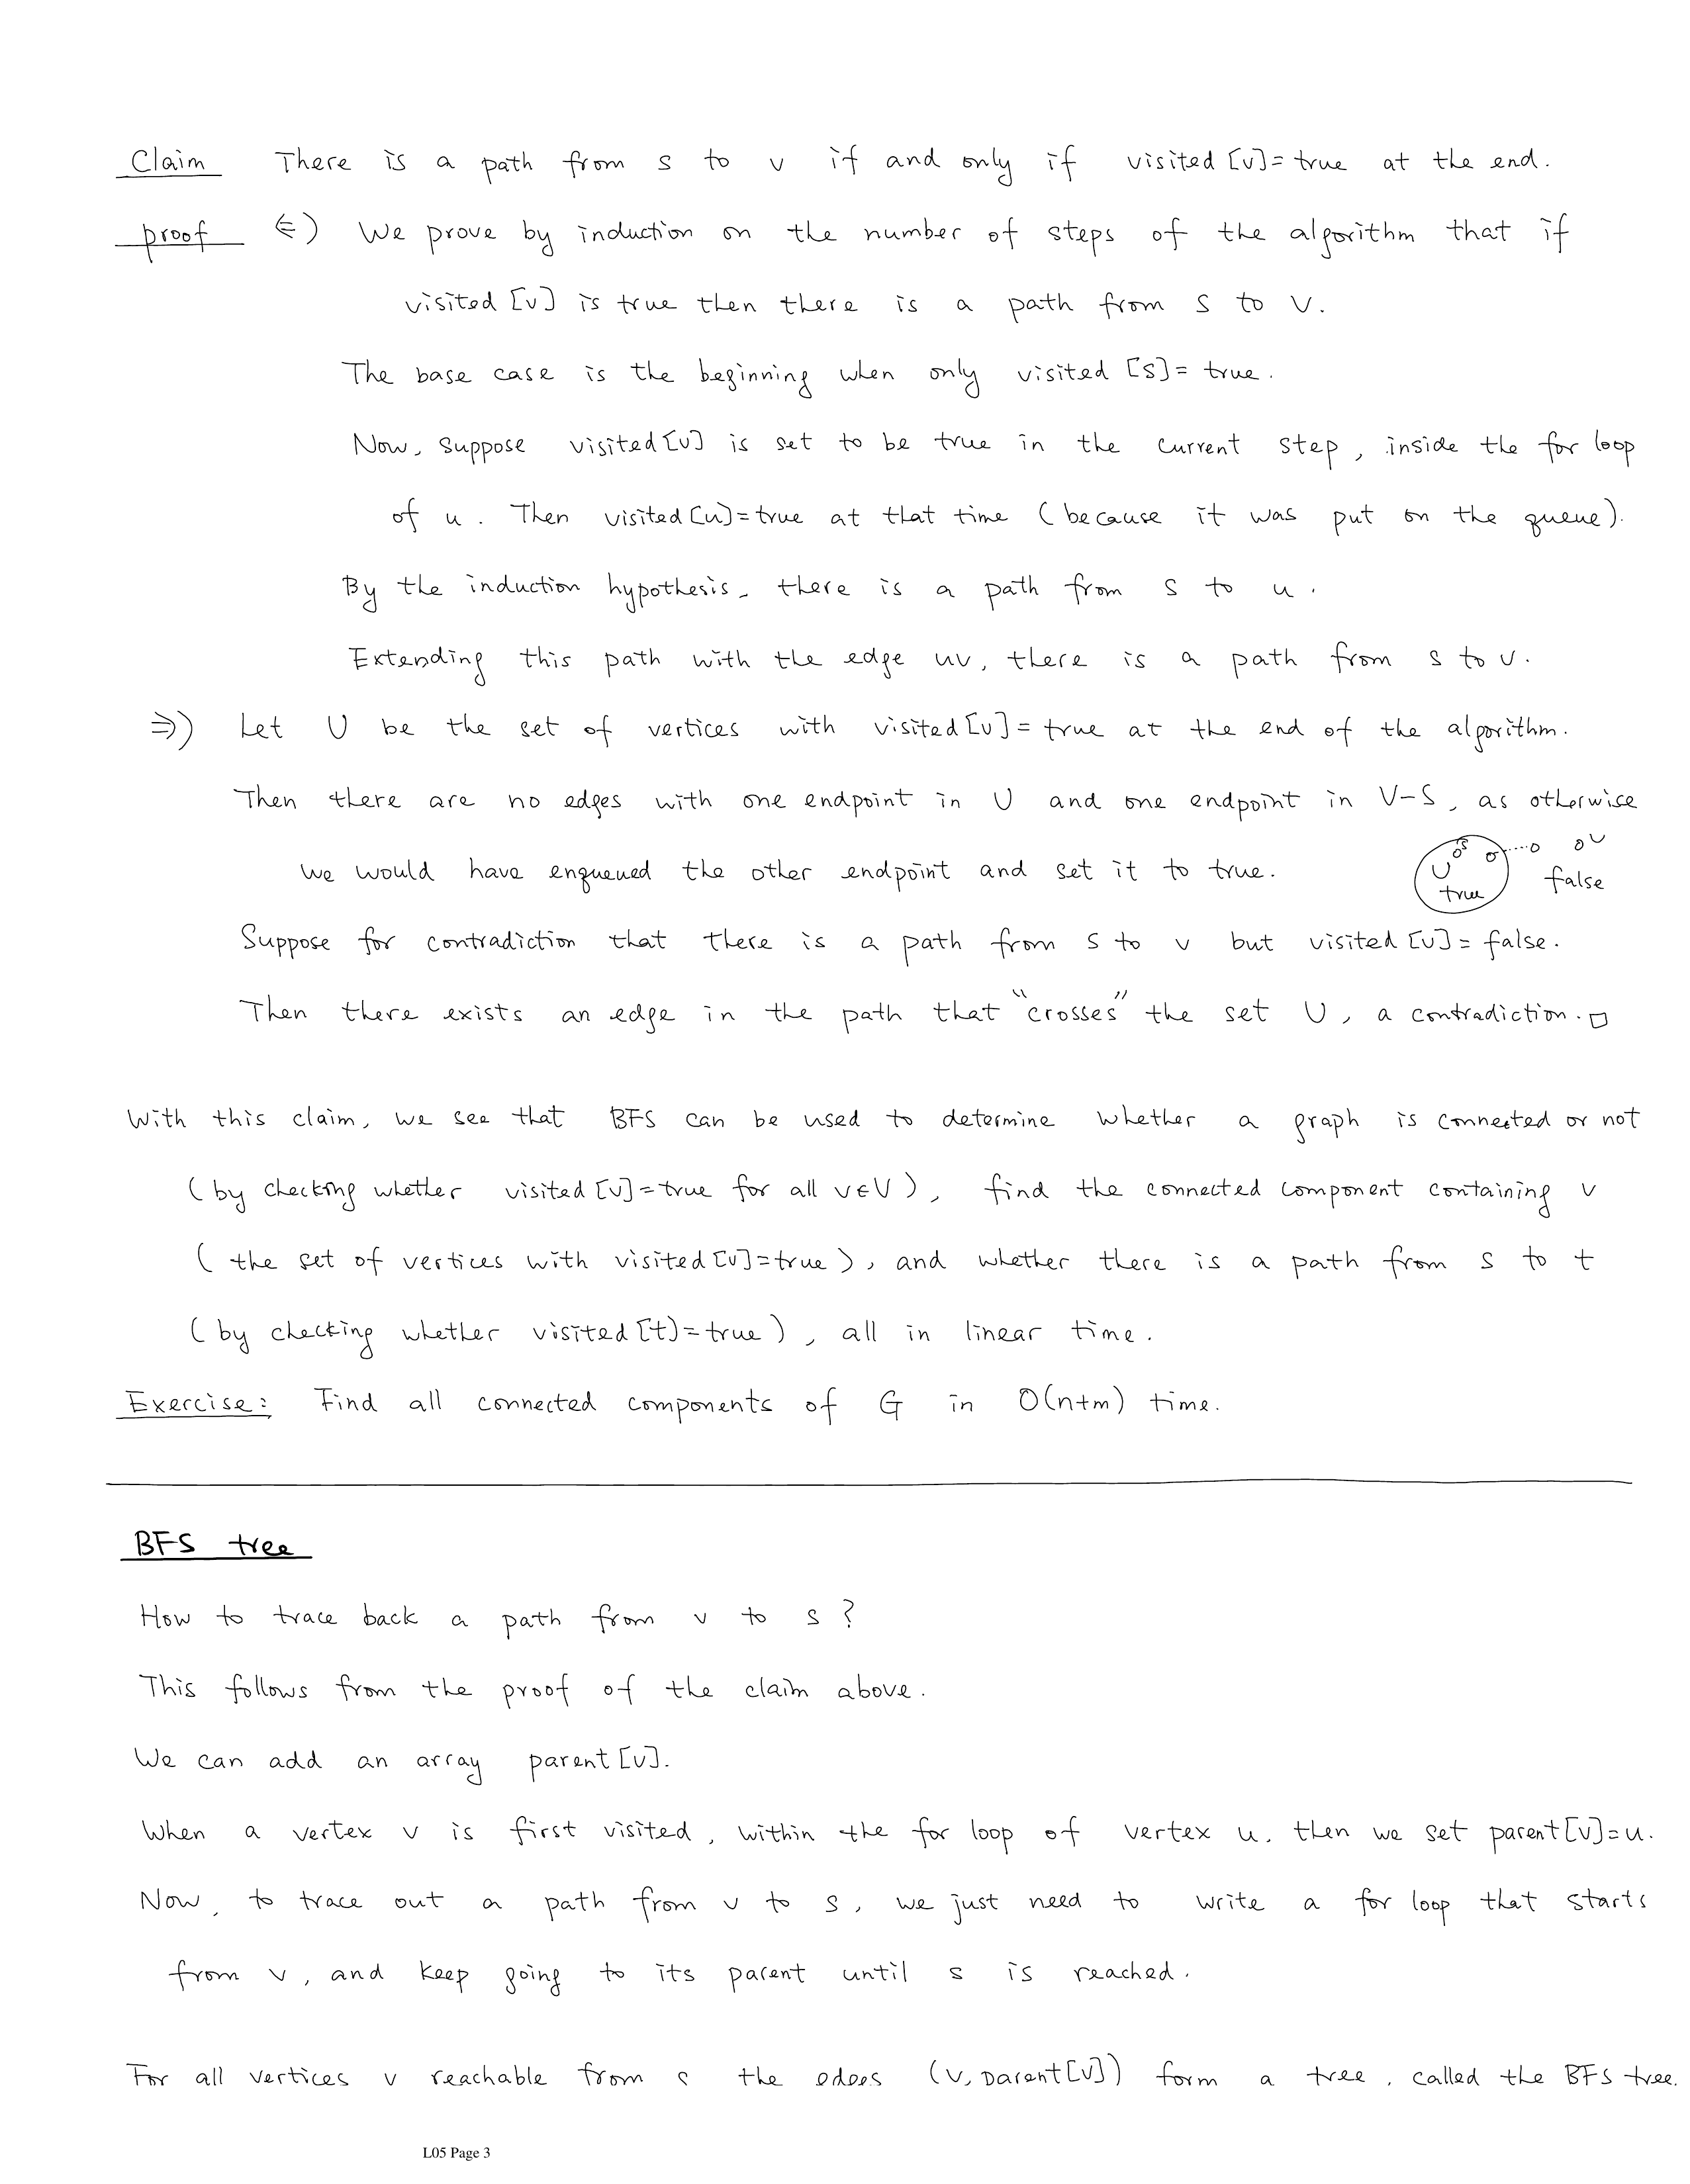 Claim There is a path from s to v if and only if visited[v]=true at the end.
proof ⇐) We prove by induction on the number of steps of the algorithm that if
visited[v] is true then there is a path from s to v.
The base case is the beginning when only visited[s]=true.
Now, suppose visited[v] is set to be true in the current step, inside the for loop
of u. Then visited[u]=true at that time (because it was put on the queue).
By the induction hypothesis, there is a path from s to u.
Extending this path with the edge uv, there is a path from s to v.
⇒) Let U be the set of vertices with visited[v]=true at the end of the algorithm.
Then there are no edges with one endpoint in U and one endpoint in V-S, as otherwise
we would have enqueued the other endpoint and set it to true.
s v
U
true false
Suppose for contradiction that there is a path from s to v but visited[v]=false.
Then there exists an edge in the path that "crosses" the set U, a contradiction. □
With this claim, we see that BFS can be used to determine whether a graph is connected or not
(by checking whether visited[v]=true for all v∈V), find the connected component containing v
(the set of vertices with visited[v]=true), and whether there is a path from s to t
(by checking whether visited[t]=true), all in linear time.
Exercise: Find all connected components of G in O(n+m) time.
BFS tree
How to trace back a path from v to s?
This follows from the proof of the claim above.
We can add an array parent[v].
When a vertex v is first visited, within the for loop of vertex u, then we set parent[v]=u.
Now, to trace out a path from v to s, we just need to write a for loop that starts
from v, and keep going to its parent until s is reached.
For all vertices v reachable from s the edges (v, parent[v]) form a tree, called the BFS tree.
L05 Page 3